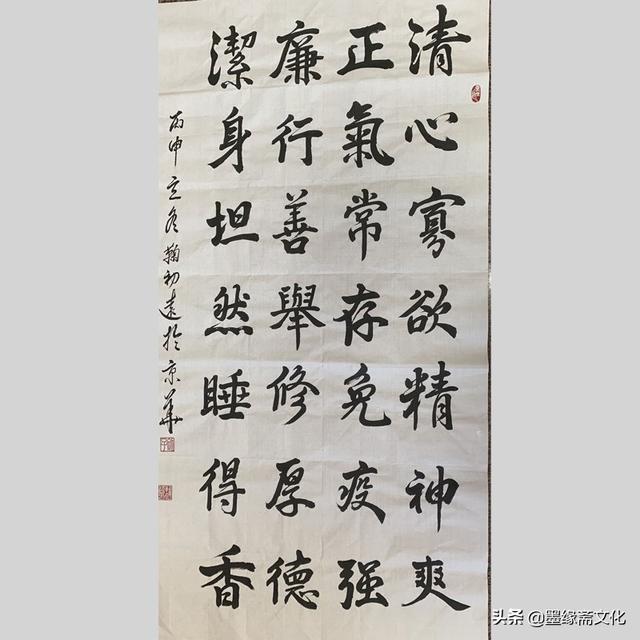 清心寡欲精神爽
正氣常存免疫强
廉行善舉修厚德
潔身坦然睡得香
丙申立冬鞠初遠於京華
头条 @墨缘斋文化